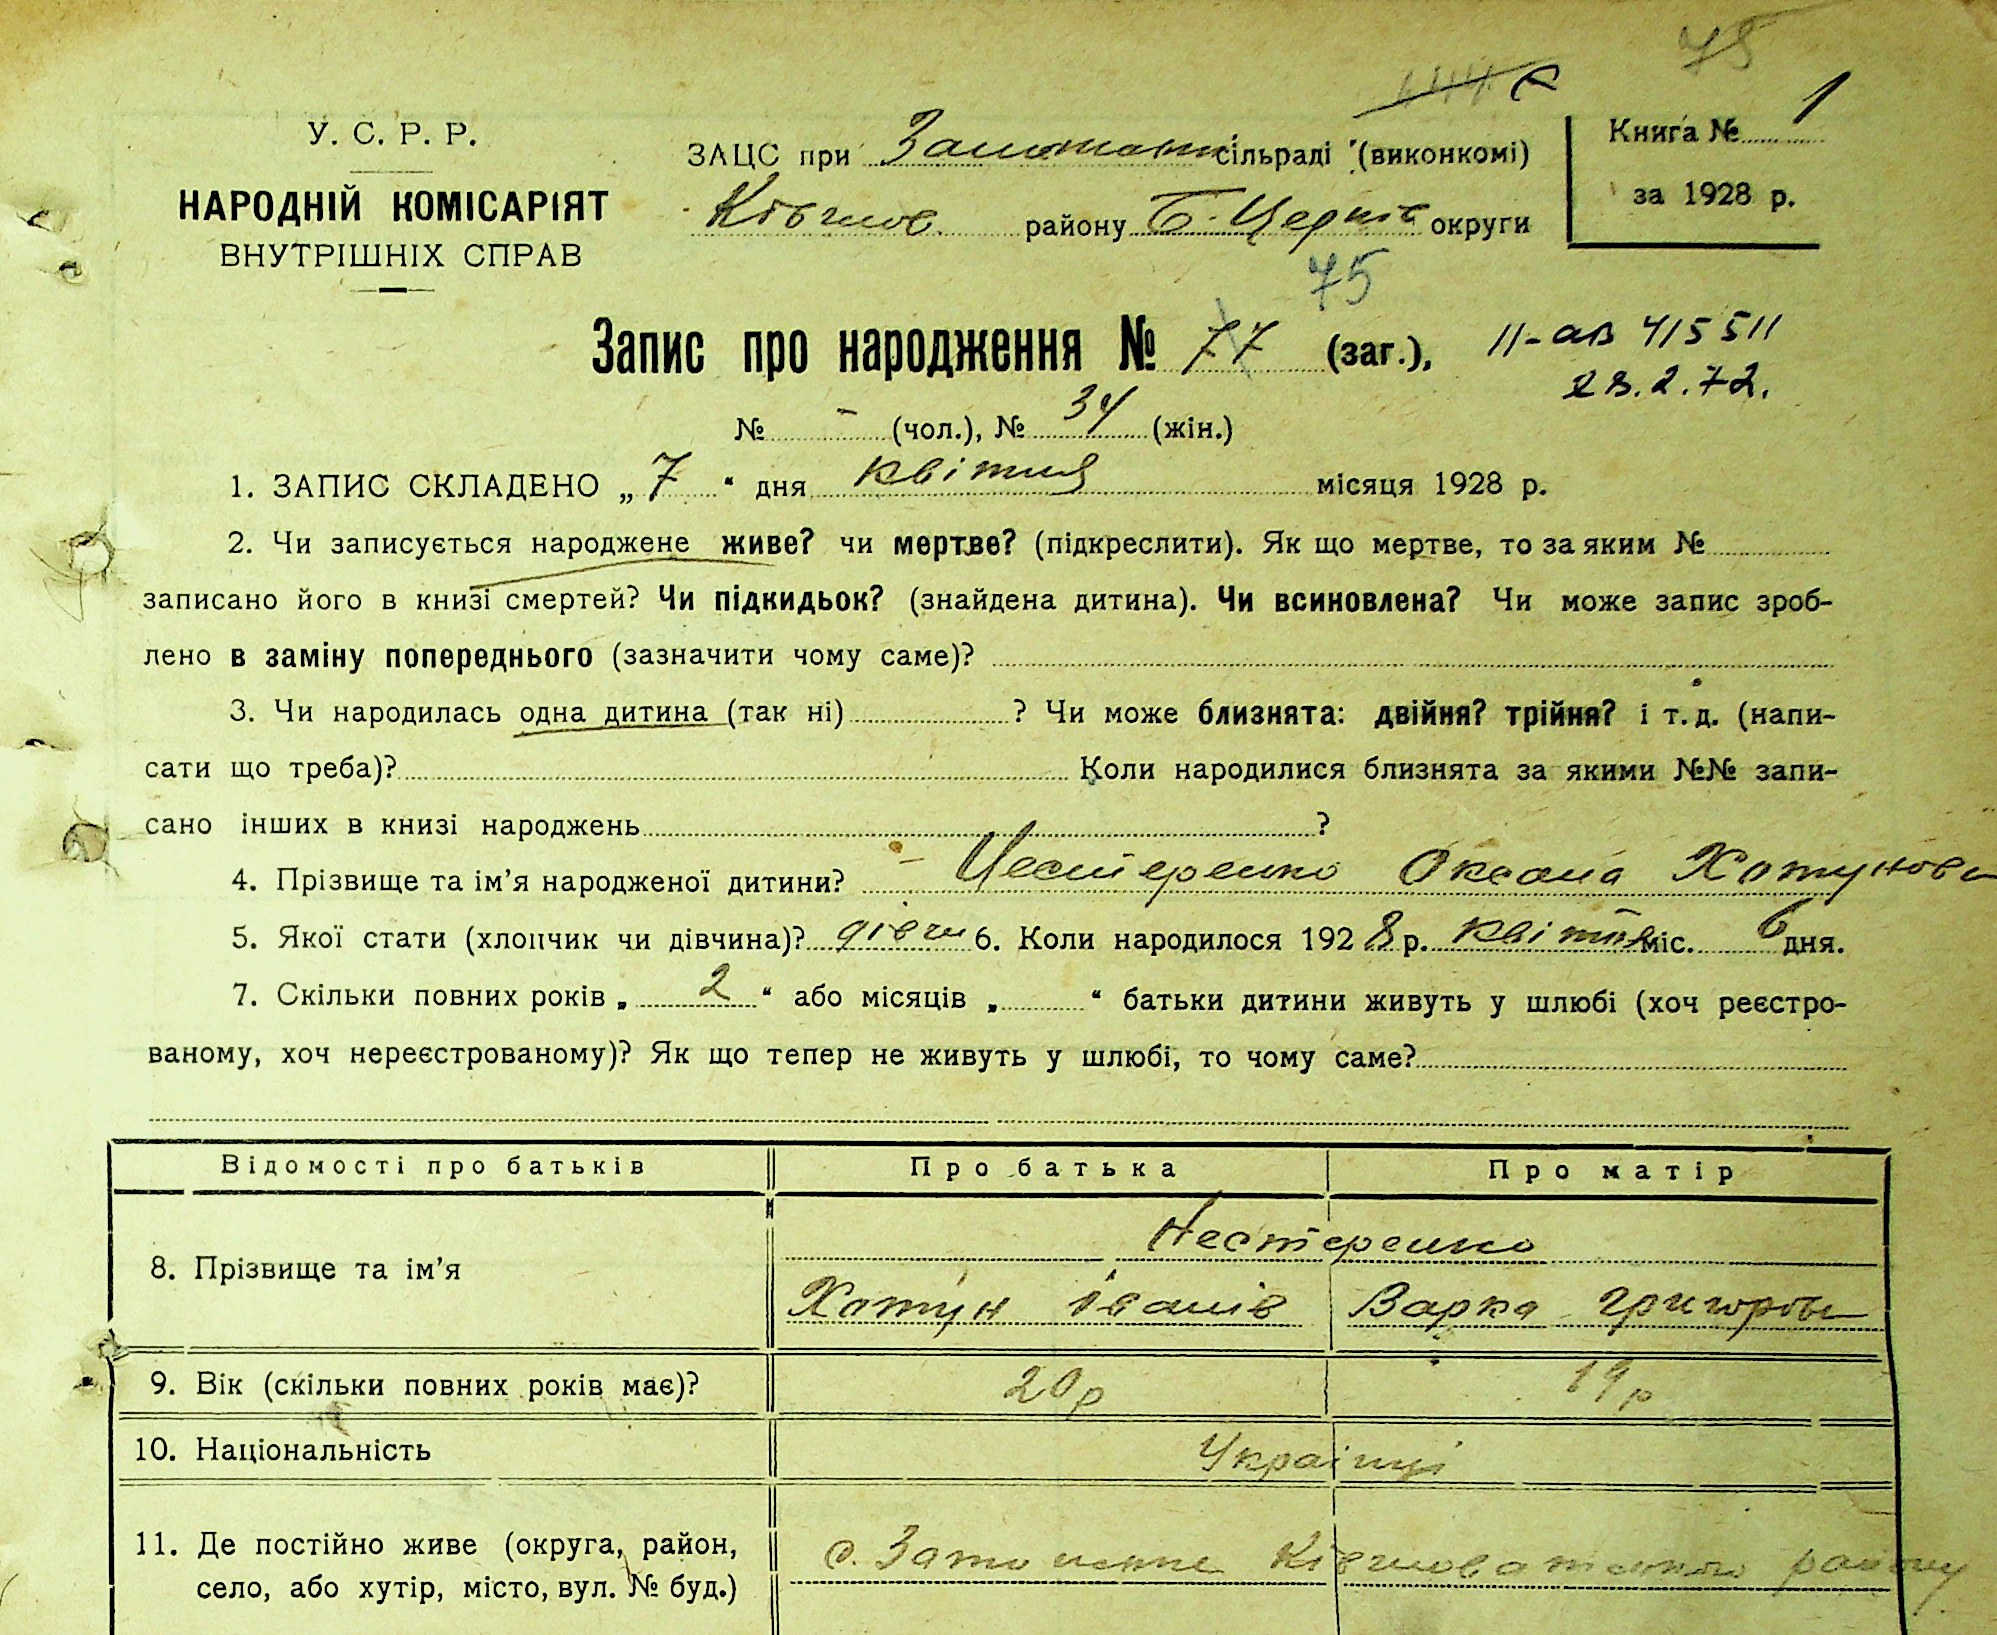 75
144
У. С. Р. Р.
НАРОДНІЙ КОМІСАРІЯТ
ВНУТРІШНІХ СПРАВ
ЗАЦС при сільраді (виконкомі)
району Б-Церків округи
Книга № 1
за 1928 р.
75
Запис про народження № 77 (заг.),
II-АВ 415511
28.2.72.
№ - (чол.), № 34 (жін.)
1. ЗАПИС СКЛАДЕНО „7“ дня квітня місяця 1928 р.
2. Чи записується народжене живе? чи мертве? (підкреслити). Як що мертве, то за яким №
записано його в книзі смертей? Чи підкидьок? (знайдена дитина). Чи всиновлена? Чи може запис зроб-
лено в заміну попереднього (зазначити чому саме)?
3. Чи народилась одна дитина (так ні) ? Чи може близнята: двійня? трійня? і т. д. (напи-
сати що треба)? Коли народилися близнята за якими №№ запи-
сано інших в книзі народжень ?
4. Прізвище та ім’я народженої дитини? Нестеренко Оксана Хотунова
5. Якої стати (хлопчик чи дівчина)? дівчи 6. Коли народилося 1928 р. квітня міс. 6 дня.
7. Скільки повних років „2“ або місяців „ “ батьки дитини живуть у шлюбі (хоч реєстро-
ваному, хоч нереєстрованому)? Як що тепер не живуть у шлюбі, то чому саме?
Відомості про батьків Про батька Про матір
8. Прізвище та ім’я
Нестеренко
Хотун Іванів Варка Григорів
9. Вік (скільки повних років має)? 20 р 19 р
10. Національність Українці
11. Де постійно живе (округа, район,
село, або хутір, місто, вул. № буд.)
с. району